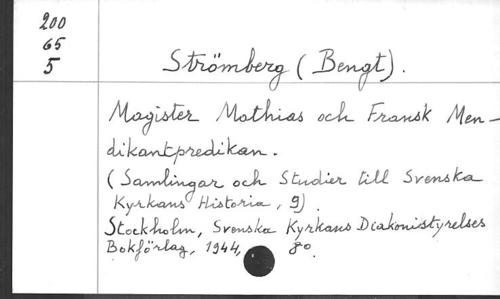 200
65
5
Strömberg (Bengt).
Magister Mathias och Fransk Men-
dikantpredikan.
(Samlingar och Studier till Svenska
Kyrkans Historia, 9)
Stockholm, Svenska Kyrkans Diakonistyrelses
Bokförlag, 1944, 8º.